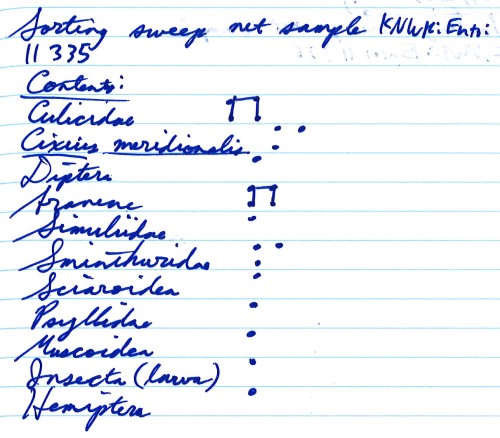 Sorting sweep net sample KNWR:Ento:
11335
Contents:
Culicidae
Cixius meridionalis
Diptera
Araneae
Simuliidae
Sminthuridae
Sciaroidea
Psyllidae
Muscoidea
Insecta (larva)
Hemiptera